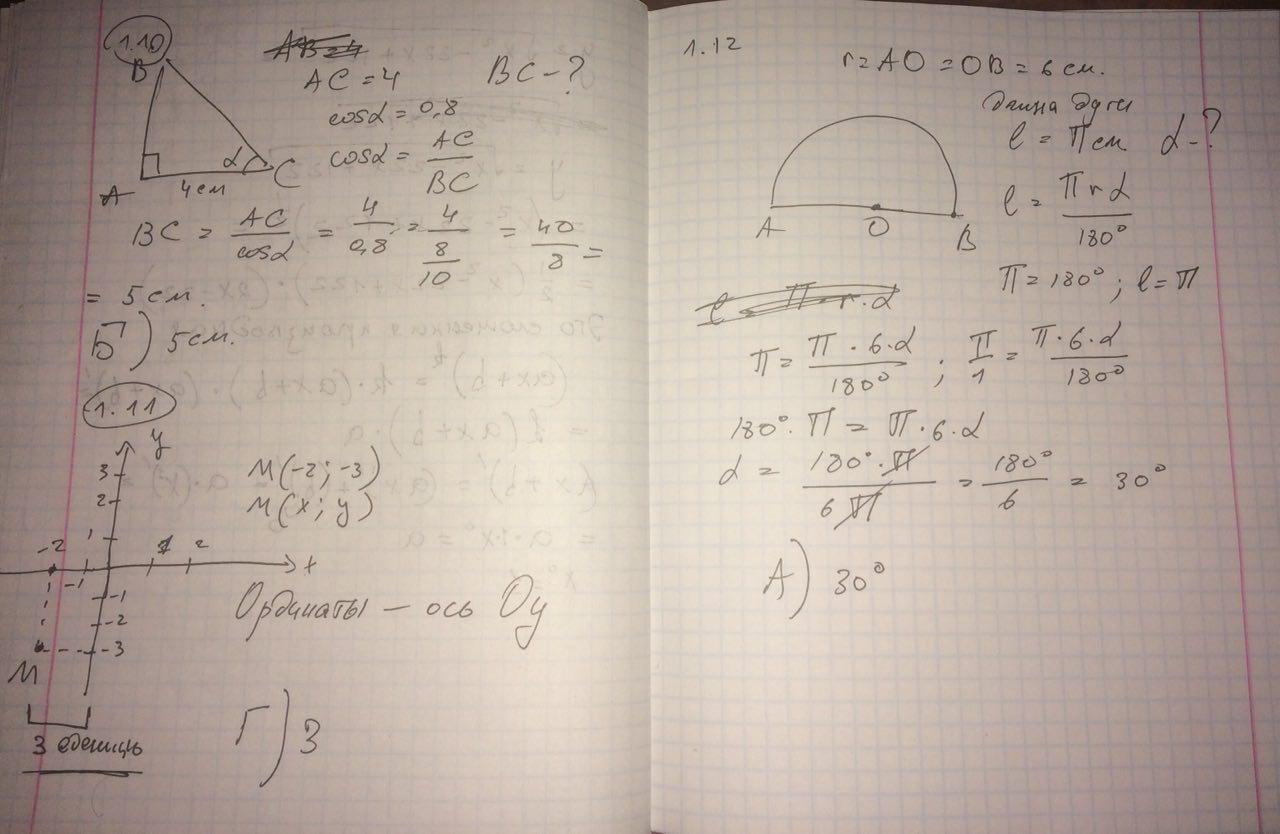 1.10
AB=4
AC = 4 BC - ?
cosα = 0,8
cosα = AC/BC
B
α
A 4 см C
BC = AC/cosα = 4/0,8 = 4/(8/10) = 40/8 =
= 5 см.
Б) 5 см.
1.11
y
3
2
1
-2 -1 1 2 x
-1
-2
-3
M
M(-2; -3)
M(x; y)
Ординаты – ось Oy
3 еденицы
Г) 3
1.12
r = AO = OB = 6 см.
Длина дуги
l = π см α - ?
A O B
l = πrα/180°
π = 180°; l = π
l = π·r·α
π = π·6·α/180° ; π/1 = π·6·α/180°
180°·π = π·6·α
α = 180°·π/6π = 180°/6 = 30°
А) 30°